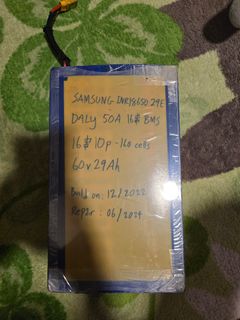 SAMSUNG INR18650 29E
DALY 50A 16S BMS
16S 10p - 160 cells
60v 29Ah
Build on : 12/2022
Repair : 06/2024